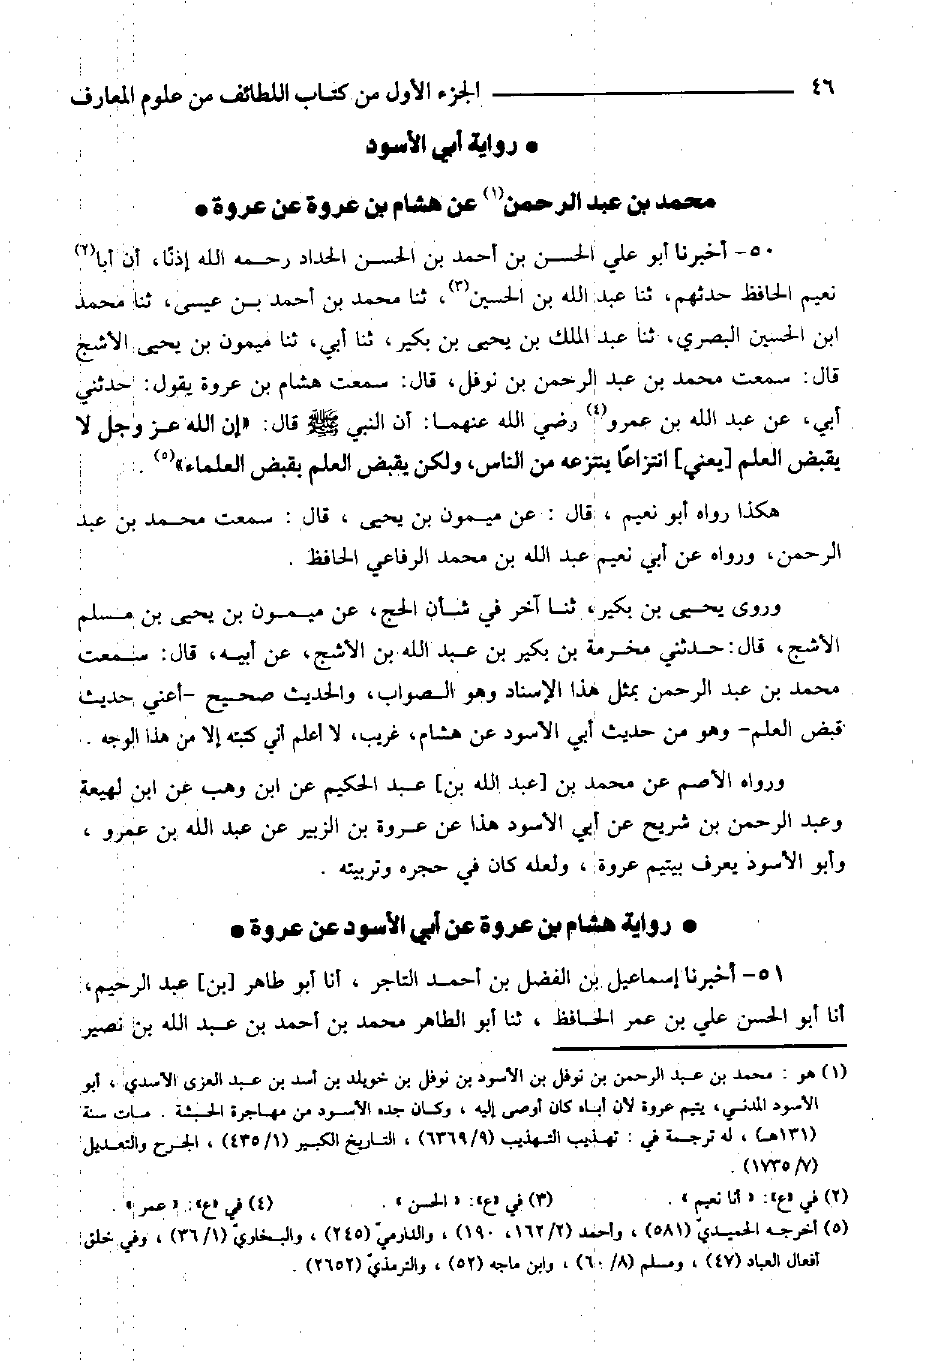 ٤٦ الجزء الأول من كتاب اللطائف من علوم المعارف
• رواية أبي الأسود
محمد بن عبد الرحمن(١) عن هشام بن عروة عن عروة •
٥٠- أخبرنا أبو علي الحسن بن أحمد بن الحسن الحداد رحمه الله إذنًا، أن أبا(٢)
نعيم الحافظ حدثهم، ثنا عبد الله بن الحسين(٣)، ثنا محمد بن أحمد بن عيسى، ثنا محمد
ابن الحسين البصري، ثنا عبد الملك بن يحيى بن بكير، ثنا أبي، ثنا ميمون بن يحيى الأشج
قال: سمعت محمد بن عبد الرحمن بن نوفل، قال: سمعت هشام بن عروة يقول: حدثني
أبي، عن عبد الله بن عمرو(٤) رضي الله عنهما: أن النبي ﷺ قال: «إن الله عز وجل لا
يقبض العلم [يعني] انتزاعًا ينتزعه من الناس، ولكن يقبض العلم بقبض العلماء»(٥) .
هكذا رواه أبو نعيم ، قال : عن ميمون بن يحيى ، قال : سمعت محمد بن عبد
الرحمن، ورواه عن أبي نعيم عبد الله بن محمد الرفاعي الحافظ .
وروى يحيى بن بكير، ثنا آخر في شأن الحج، عن ميمون بن يحيى بن مسلم
الأشج، قال: حدثني مخرمة بن بكير بن عبد الله بن الأشج، عن أبيه، قال: سمعت
محمد بن عبد الرحمن بمثل هذا الإسناد وهو الصواب، والحديث صحيح -أعني حديث
قبض العلم- وهو من حديث أبي الأسود عن هشام، غريب، لا أعلم أني كتبته إلا من هذا الوجه .
ورواه الأصم عن محمد بن [عبد الله بن] عبد الحكيم عن ابن وهب عن ابن لهيعة
وعبد الرحمن بن شريح عن أبي الأسود هذا عن عروة بن الزبير عن عبد الله بن عمرو ،
وأبو الأسود يعرف بيتيم عروة ، ولعله كان في حجره وتربيته .
• رواية هشام بن عروة عن أبي الأسود عن عروة •
٥١- أخبرنا إسماعيل بن الفضل بن أحمد التاجر ، أنا أبو طاهر [بن] عبد الرحيم،
أنا أبو الحسن علي بن عمر الحافظ ، ثنا أبو الطاهر محمد بن أحمد بن عبد الله بن نصير
(١) هو : محمد بن عبد الرحمن بن نوفل بن الأسود بن نوفل بن خويلد بن أسد بن عبد العزى الأسدي ، أبو
الأسود المدني، يتيم عروة لأن أباه كان أوصى إليه ، وكان جده الأسود من مهاجرة الحبشة . مات سنة
(١٣١هـ) ، له ترجمة في : تهذيب التهذيب (٦٣٦٩/٩) ، التاريخ الكبير (٤٣٥/١) ، الجرح والتعديل
(١٧٣٥/٧) .
(٢) في «ع»: « أنا نعيم » . (٣) في «ع»: « الحسن » . (٤) في «ع»: « عمر» .
(٥) أخرجه الحميديّ (٥٨١) ، وأحمد (١٦٢/٢، ١٩٠) ، والدارميّ (٢٤٥) ، والبخاريّ (٣٦/١) ، وفي خلق
أفعال العباد (٤٧) ، ومسلم (٦٠/٨) ، وابن ماجه (٥٢) ، والترمذيّ (٢٦٥٢) .